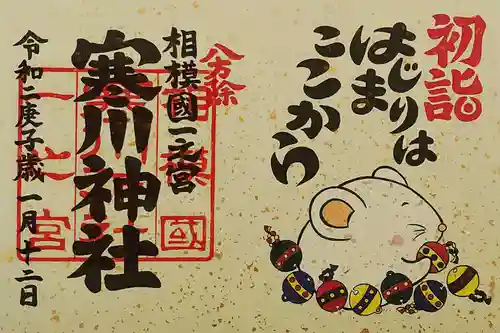 初詣
はじまりは
ここから
八方除
相模國一之宮
寒川神社
令和二庚子歳一月十二日